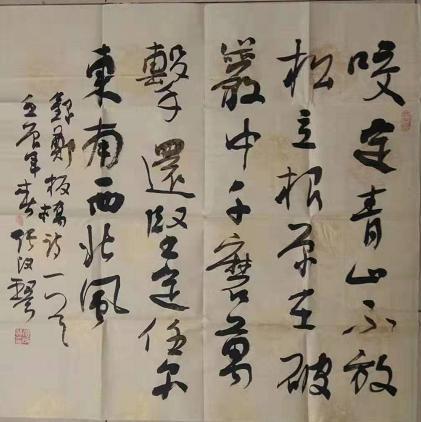 咬定青山不放
松立根原在破
巖中千磨萬
擊還堅定任尔
東南西北風
録鄭板橋詩一首
年春